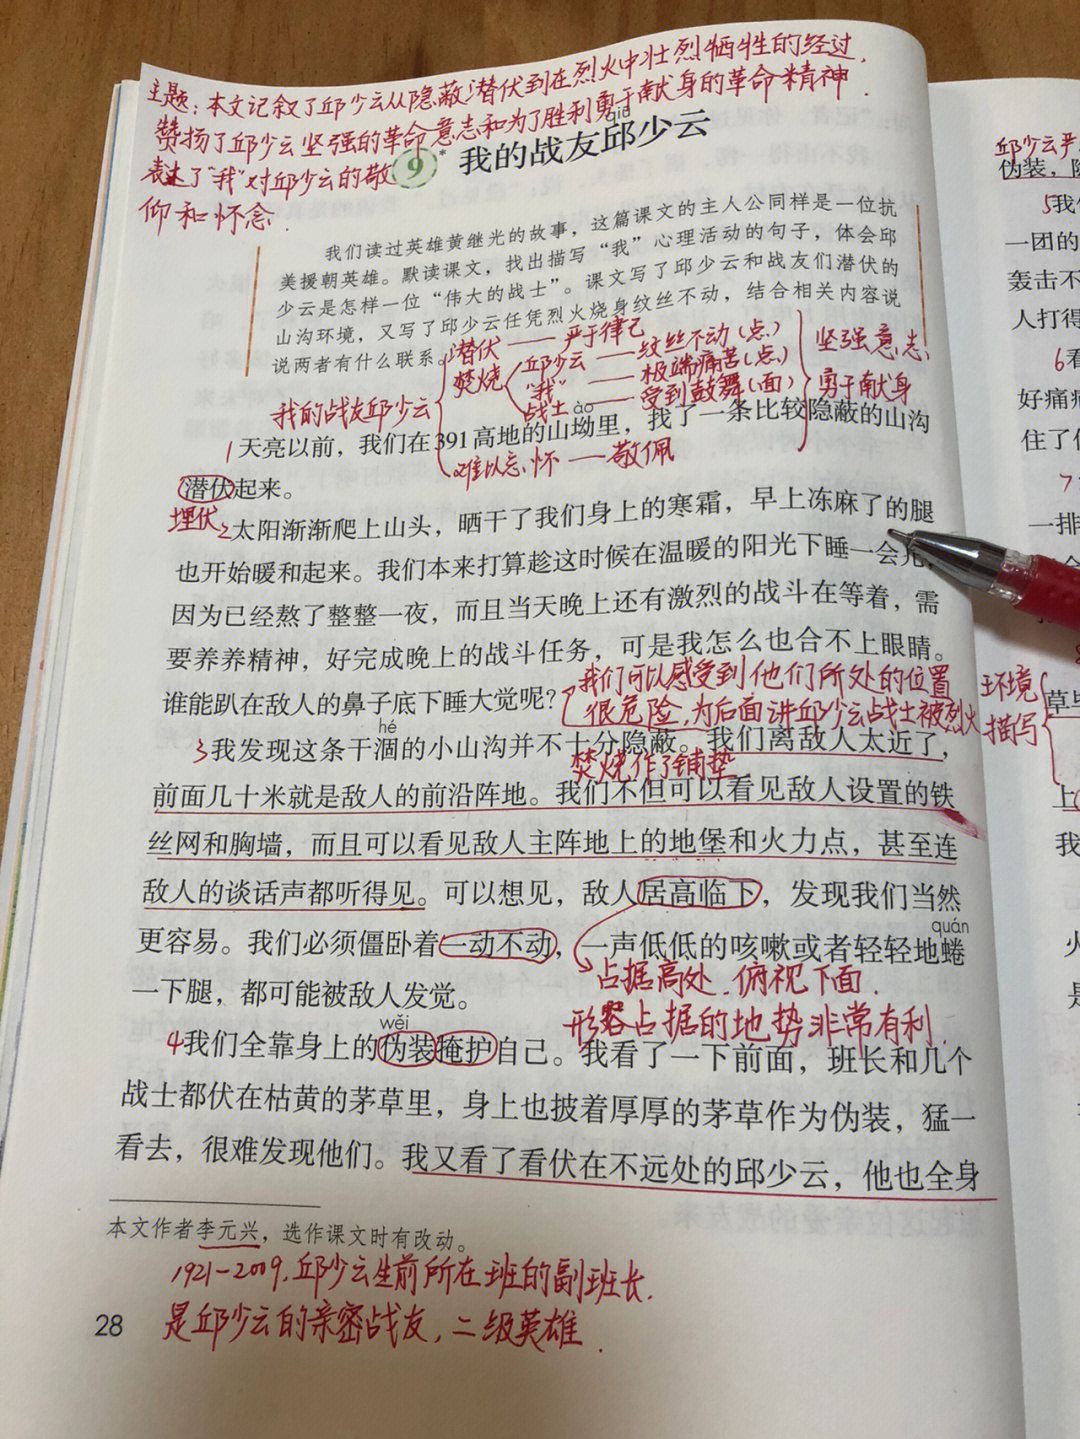 主题：本文记叙了邱少云从隐蔽潜伏到在烈火中壮烈牺牲的经过，
赞扬了邱少云坚强的革命意志和为了胜利勇于献身的革命精神.
表达了“我”对邱少云的敬
仰和怀念.
qiū
9* 我的战友邱少云
我们读过英雄黄继光的故事，这篇课文的主人公同样是一位抗
美援朝英雄。默读课文，找出描写“我”心理活动的句子，体会邱
少云是怎样一位“伟大的战士”。课文写了邱少云和战友们潜伏的
山沟环境，又写了邱少云任凭烈火烧身纹丝不动，结合相关内容说
说两者有什么联系。
潜伏——严于律己
焚烧 邱少云——纹丝不动(点)
“我”——极端痛苦(点)
战士——受到鼓舞(面)
坚强意志
勇于献身
我的战友邱少云
难以忘怀——敬佩
ào
1天亮以前，我们在391高地的山坳里，找了一条比较隐蔽的山沟
潜伏起来。
埋伏
2太阳渐渐爬上山头，晒干了我们身上的寒霜，早上冻麻了的腿
也开始暖和起来。我们本来打算趁这时候在温暖的阳光下睡一会儿，
因为已经熬了整整一夜，而且当天晚上还有激烈的战斗在等着，需
要养养精神，好完成晚上的战斗任务，可是我怎么也合不上眼睛。
谁能趴在敌人的鼻子底下睡大觉呢？
我们可以感受到他们所处的位置
很危险，为后面讲邱少云战士被烈火
焚烧作了铺垫
hé
3我发现这条干涸的小山沟并不十分隐蔽。我们离敌人太近了，
前面几十米就是敌人的前沿阵地。我们不但可以看见敌人设置的铁
丝网和胸墙，而且可以看见敌人主阵地上的地堡和火力点，甚至连
敌人的谈话声都听得见。可以想见，敌人居高临下，发现我们当然
quán
更容易。我们必须僵卧着一动不动，一声低低的咳嗽或者轻轻地蜷
一下腿，都可能被敌人发觉。
占据高处.俯视下面.
形容占据的地势非常有利.
wěi
4我们全靠身上的伪装掩护自己。我看了一下前面，班长和几个
战士都伏在枯黄的茅草里，身上也披着厚厚的茅草作为伪装，猛一
看去，很难发现他们。我又看了看伏在不远处的邱少云，他也全身
本文作者李元兴，选作课文时有改动。
1921-2009.邱少云生前所在班的副班长.
是邱少云的亲密战友，二级英雄.
28
邱少云严
伪装，隐
5我
一团的
轰击不
人打得
6看
好痛
住了
7
一排
环境
描写
草
上
我
火
是